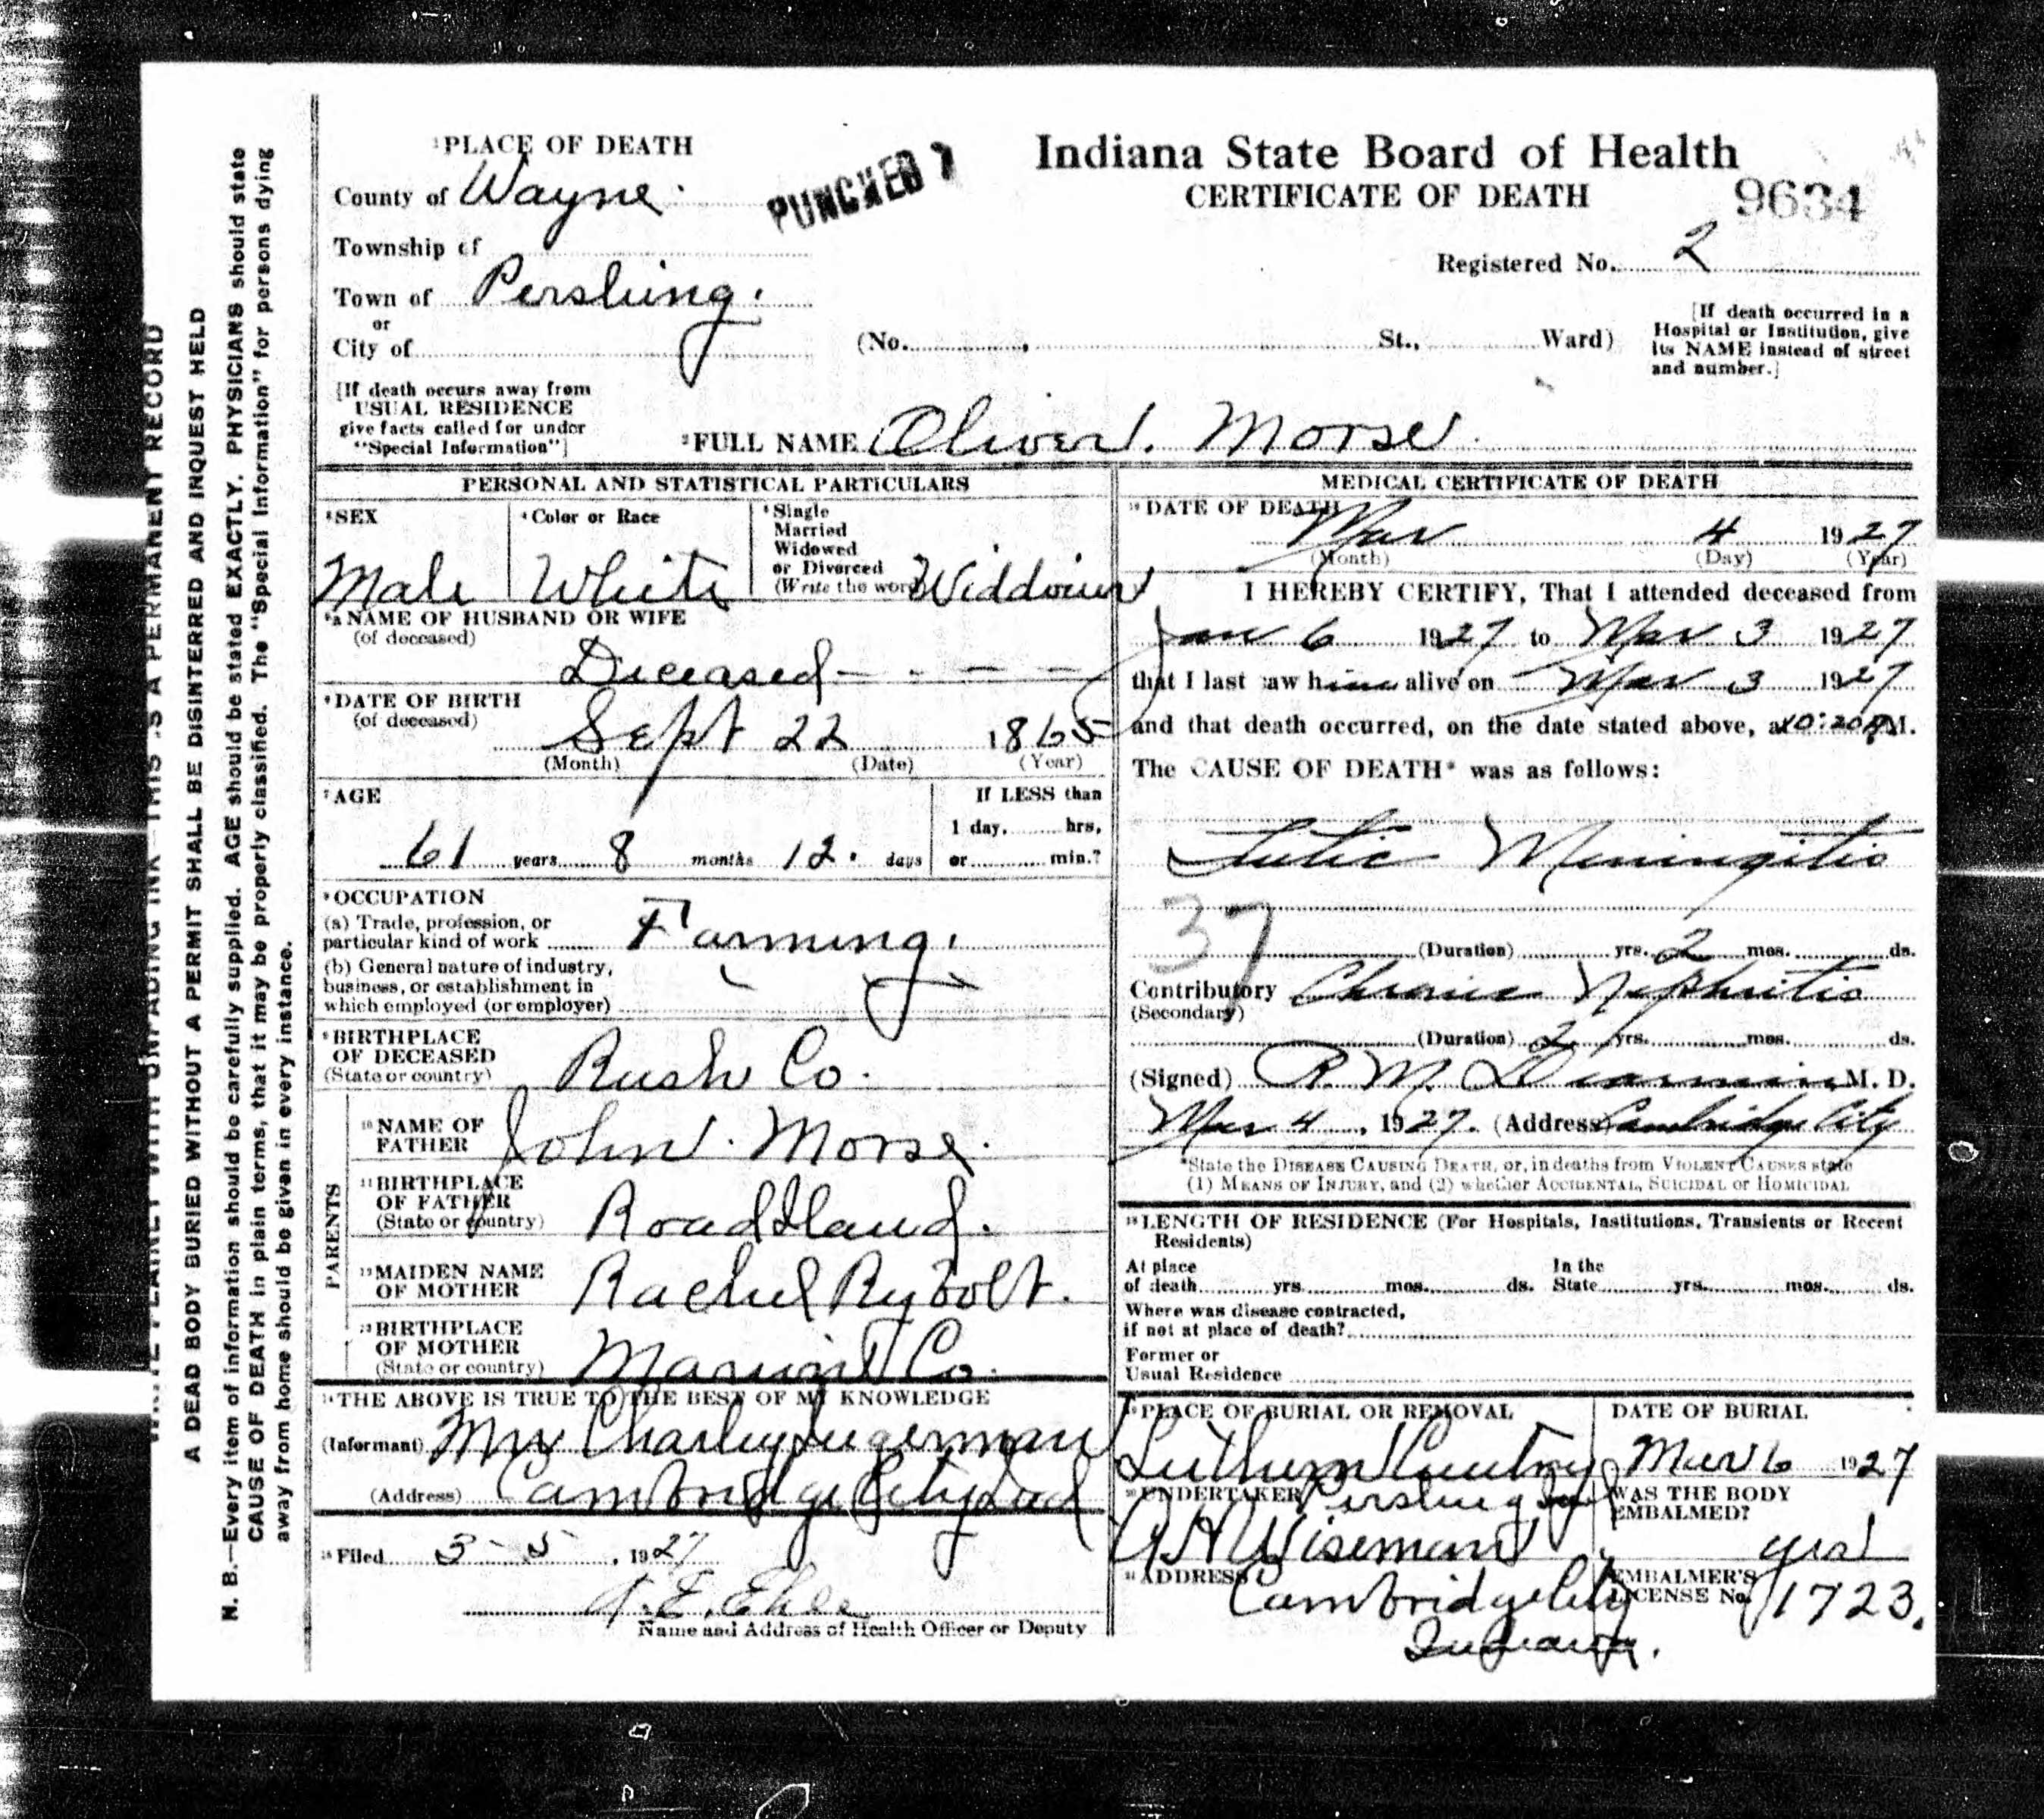 WRITE PLAINLY WITH UNFADING INK—THIS IS A PERMANENT RECORD
A DEAD BODY BURIED WITHOUT A PERMIT SHALL BE DISINTERRED AND INQUEST HELD
N. B.—Every item of information should be carefully supplied. AGE should be stated EXACTLY. PHYSICIANS should state
CAUSE OF DEATH in plain terms, that it may be properly classified. The "Special Information" for persons dying
away from home should be given in every instance.
1 PLACE OF DEATH
County of Wayne.
Township of
Town of Pershing.
or
City of
PUNCHED
Indiana State Board of Health
CERTIFICATE OF DEATH
9634
Registered No. 2
(No. , St., Ward)
[If death occurred in a
Hospital or Institution, give
its NAME instead of street
and number.]
[If death occurs away from
USUAL RESIDENCE
give facts called for under
"Special Information"]
2 FULL NAME Oliver. Morse.
PERSONAL AND STATISTICAL PARTICULARS
3 SEX
Male
4 Color or Race
White
5 Single
Married
Widowed
or Divorced
(Write the word) Widdower
5a NAME OF HUSBAND OR WIFE
(of deceased)
Deceased - - - -
6 DATE OF BIRTH
(of deceased)
Sept 22 1865
(Month) (Date) (Year)
7 AGE
61 years 8 months 12. days
If LESS than
1 day, hrs,
or min.?
8 OCCUPATION
(a) Trade, profession, or
particular kind of work Farming.
(b) General nature of industry,
business, or establishment in
which employed (or employer)
9 BIRTHPLACE
OF DECEASED
(State or country) Rush Co.
PARENTS
10 NAME OF
FATHER John. Morse.
11 BIRTHPLACE
OF FATHER
(State or country) Road Iland.
12 MAIDEN NAME
OF MOTHER Rachel Rybolt.
13 BIRTHPLACE
OF MOTHER
(State or country) Co.
14 THE ABOVE IS TRUE TO THE BEST OF MY KNOWLEDGE
(Informant) Mrs Charley
(Address) Cambridge City Ind
15 Filed 3-5, 1927
Name and Address of Health Officer or Deputy
MEDICAL CERTIFICATE OF DEATH
16 DATE OF DEATH
Mar 4 1927
(Month) (Day) (Year)
I HEREBY CERTIFY, That I attended deceased from
Jan 6 1927 to Mar 3 1927
that I last saw him alive on Mar 3 1927
and that death occurred, on the date stated above, at 10:20 M.
The CAUSE OF DEATH* was as follows:
Luetic Meningitis
37
(Duration) yrs. 2 mos. ds.
Contributory Chronic Nephritis
(Secondary)
(Duration) 2 yrs. mos. ds.
(Signed) R. M. M. D.
Mar 4, 1927. (Address) Cambridge City
*State the DISEASE CAUSING DEATH, or, in deaths from VIOLENT CAUSES state
(1) MEANS OF INJURY, and (2) whether ACCIDENTAL, SUICIDAL or HOMICIDAL
18 LENGTH OF RESIDENCE (For Hospitals, Institutions, Transients or Recent
Residents)
At place
of death yrs. mos. ds.
In the
State yrs. mos. ds.
Where was disease contracted,
if not at place of death?
Former or
Usual Residence
19 PLACE OF BURIAL OR REMOVAL
Pershing Ind
DATE OF BURIAL
Mar 6 1927
20 UNDERTAKER
Wiseman
WAS THE BODY
EMBALMED?
yes
21 ADDRESS
Cambridge City
Indiana.
EMBALMER'S
LICENSE No. 1723.